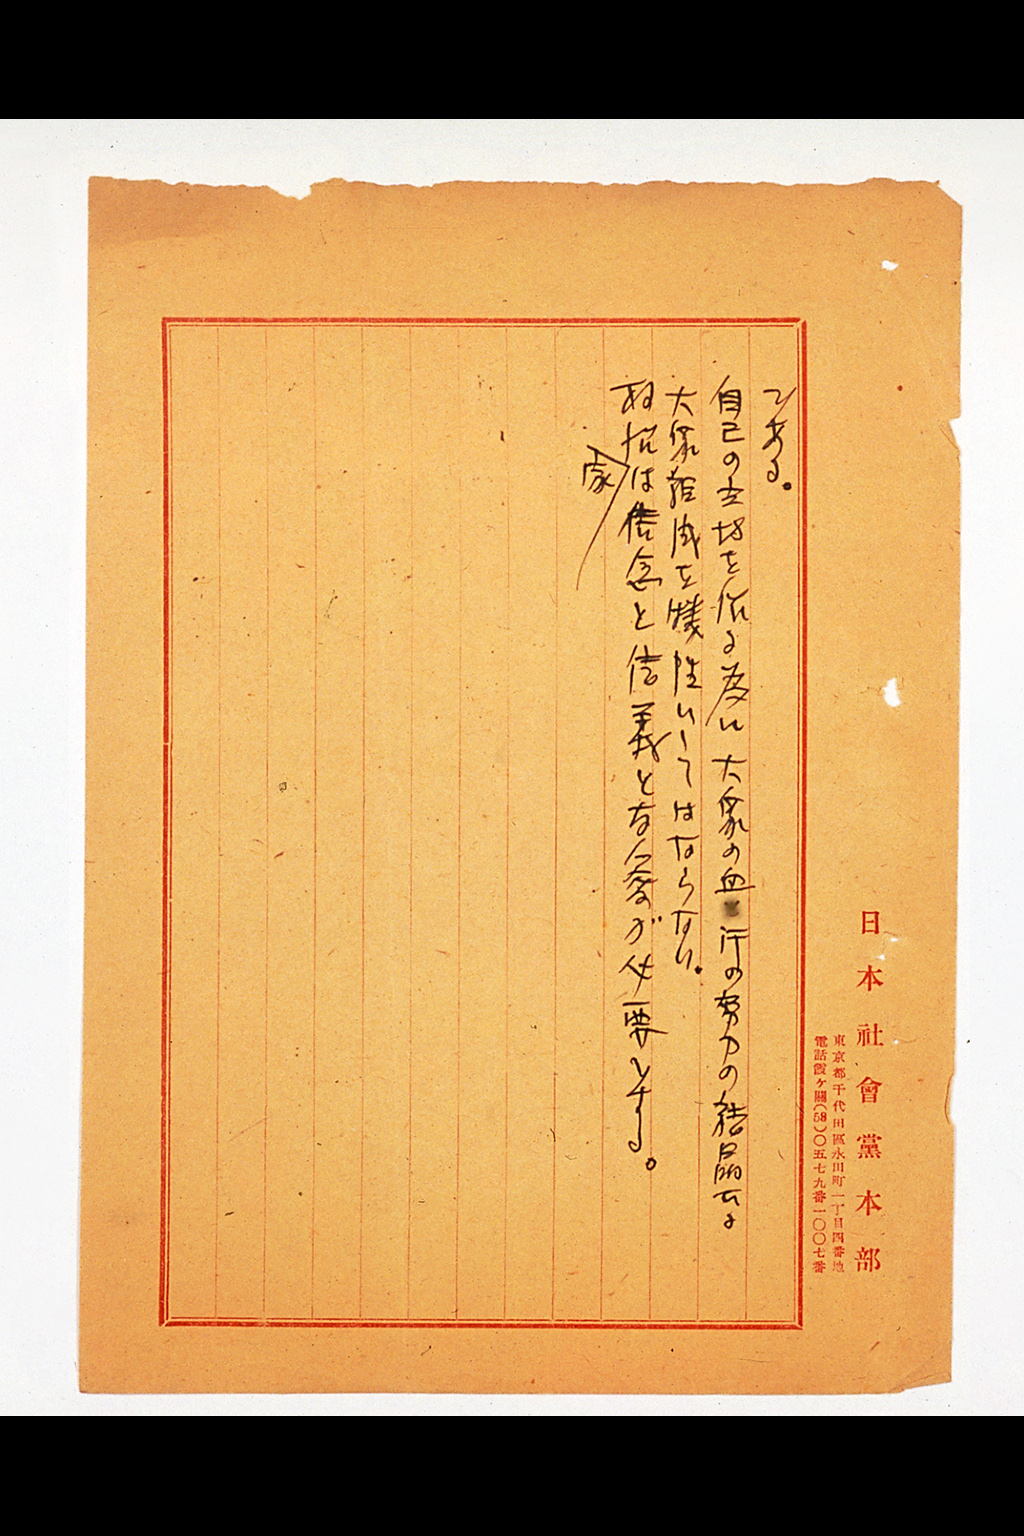 日本社會黨本部
東京都千代田區永田町一丁目四番地
電話霞ヶ關(58)〇五七九番一〇〇七番
である。
自己の立場を保る為に大衆の血と汗の努力の結晶なる
大衆組成を犠牲にしてはならない。
政治家は信念と信義と気魄が必要とする。